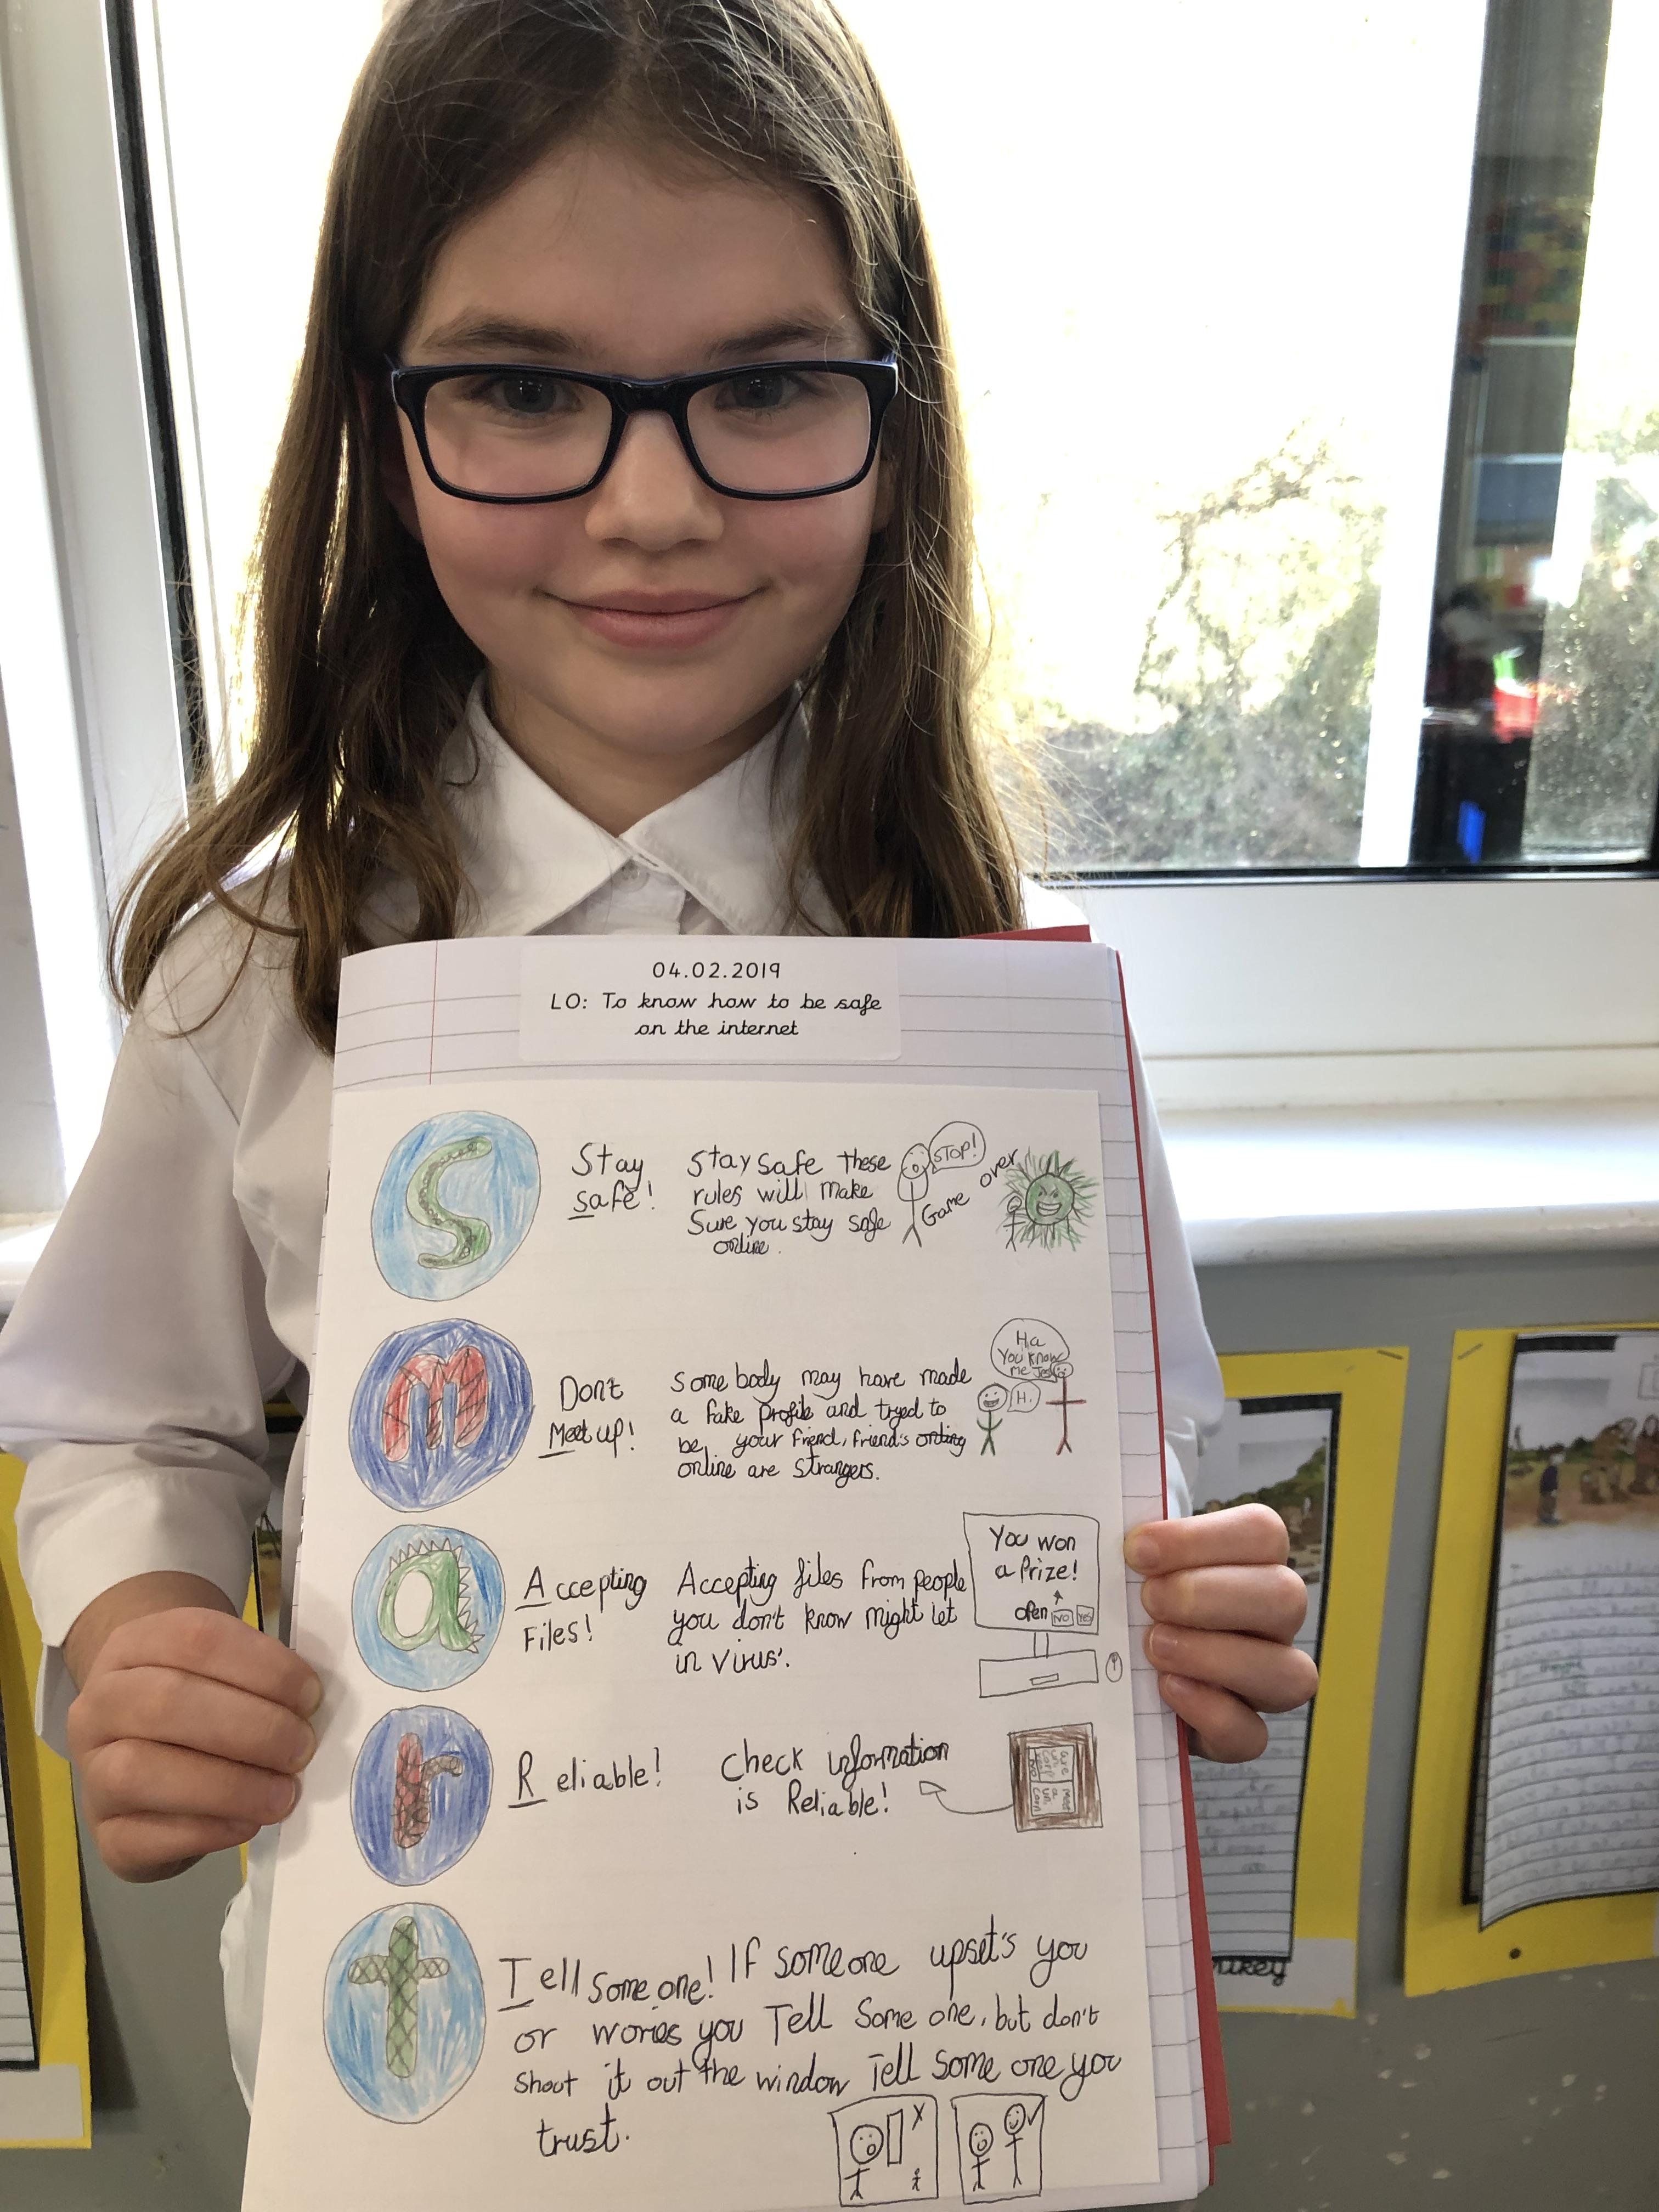 04.02.2019
LO: To know how to be safe
on the internet
S
Stay
safe!
Stay safe These
rules will make
Sure you stay safe
online.
STOP!
Game over
m
Don't
Meet up!
Somebody may have made
a fake profile and tryed to
be your friend, friend's
online are strangers.
Ha
You know
me
Hi
a
Accepting
Files!
Accepting files from people
you don't know might let
in virus'.
You won
a Prize!
open NO Yes
r
Reliable!
Check information
is Reliable!
t
Tell Some one! If someone upset's you
or worries you Tell Some one, but don't
shout it out the window Tell some one you
trust.